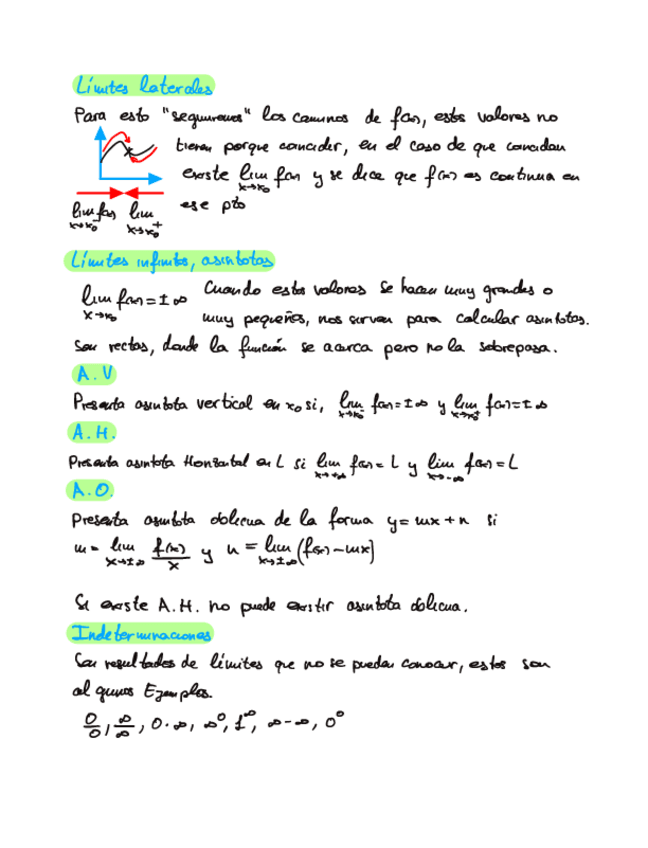 Límites laterales
Para esto "seguiremos" los caminos de f(x), estos valores no
tienen porque coincidir, en el caso de que coincidan
existe lim x→x₀ f(x) y se dice que f(x) es continua en
ese pto
lim x→x₀⁻ f(x) lim x→x₀⁺
Límites infinitos, asíntotas
lim x→x₀ f(x) = ±∞ Cuando estos valores se hacen muy grandes o
muy pequeños, nos sirven para calcular asíntotas.
Son rectas, donde la función se acerca pero no la sobrepasa.
A.V
Presenta asíntota vertical en x₀ si, lim x→x₀⁻ f(x) = ±∞ y lim x→x₀⁺ f(x) = ±∞
A.H.
Presenta asíntota Horizontal en L si lim x→+∞ f(x) = L y lim x→-∞ f(x) = L
A.O.
Presenta asíntota oblicua de la forma y = mx + n si
m = lim x→±∞ f(x)/x y n = lim x→±∞ (f(x) - mx)
Si existe A.H. no puede existir asíntota oblicua.
Indeterminaciones
Son resultados de límites que no se pueden conocer, estos son
algunos Ejemplos.
0/0, ∞/∞, 0·∞, ∞⁰, 1^∞, ∞-∞, 0⁰